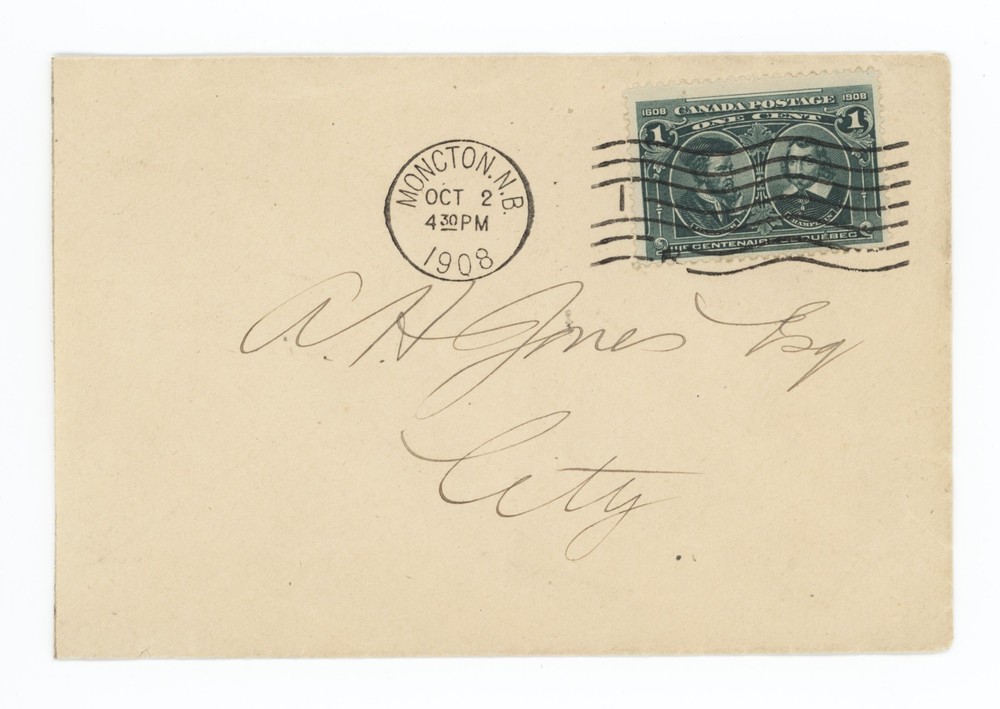 1608 CANADA POSTAGE 1908
1 ONE CENT 1
CHAMPLAIN
IIIE CENTENAIRE DE QUÉBEC
MONCTON. N.B.
OCT 2
4 30 PM
1908
A. H. Jones Esq
City